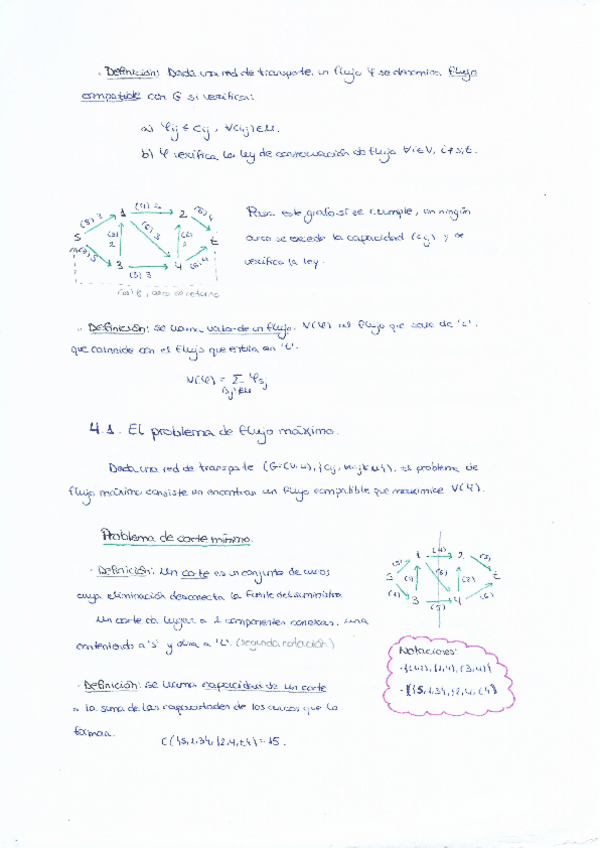 · Definición: Dada una red de transporte, un flujo φ se denomina flujo
compatible con G si verifica:
a) φij ≤ Cij, ∀(i,j)∈U.
b) φ verifica la ley de conservación de flujo ∀i∈V, i≠s,t.
(4) 2
(5) 3
1
2
(5) 4
(6) 3
(3)
2
(2)
S
t
5
3
4
(5) 3
(6) 4
Para este grafo sí se cumple, en ningún
arco se excede la capacidad (cij) y se
verifica la ley.
· Definición: se llama valor de un flujo, V(φ) al flujo que sale de 's',
que coincide con el flujo que entra en 't'.
V(φ) = Σ φsj
4.1. El problema de flujo máximo.
Dada una red de transporte (G=(V,U), {Cij, (i,j)∈U}), el problema de
flujo máximo consiste en encontrar un flujo compatible que maximice V(φ).
Problema de corte mínimo.
· Definición: Un corte es un conjunto de arcos
cuya eliminación desconecta la fuente del sumidero.
Un corte da lugar a 2 componentes conexas, una
conteniendo a 's' y otra a 't'. (segunda notación)
1
(4)
2
(5)
(6)
(2)
t
3
(5)
4
(6)
Notaciones:
-{(1,2), (1,4), (3,4)}
-{{s,1,3}, {2,4,t}}
· Definición: se llama capacidad de un corte
a la suma de las capacidades de los arcos que lo
forman.
C({s,1,3}, {2,4,t}) = 15.